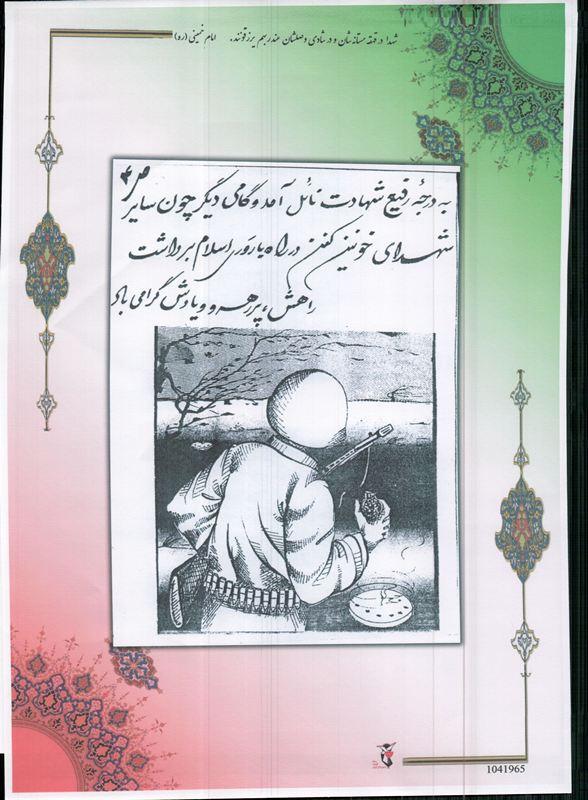 شهدا در قهقهه مستانه‌شان و در شادی وصلشان عند ربهم یرزقونند. امام خمینی (ره)
به درجهٔ رفیع شهادت نائل آمد و گامی دیگر چون سایر
شهدای خونین کفن در راه یاروری اسلام برداشت
راهش، پررهرو و یادش گرامی باد
1041965